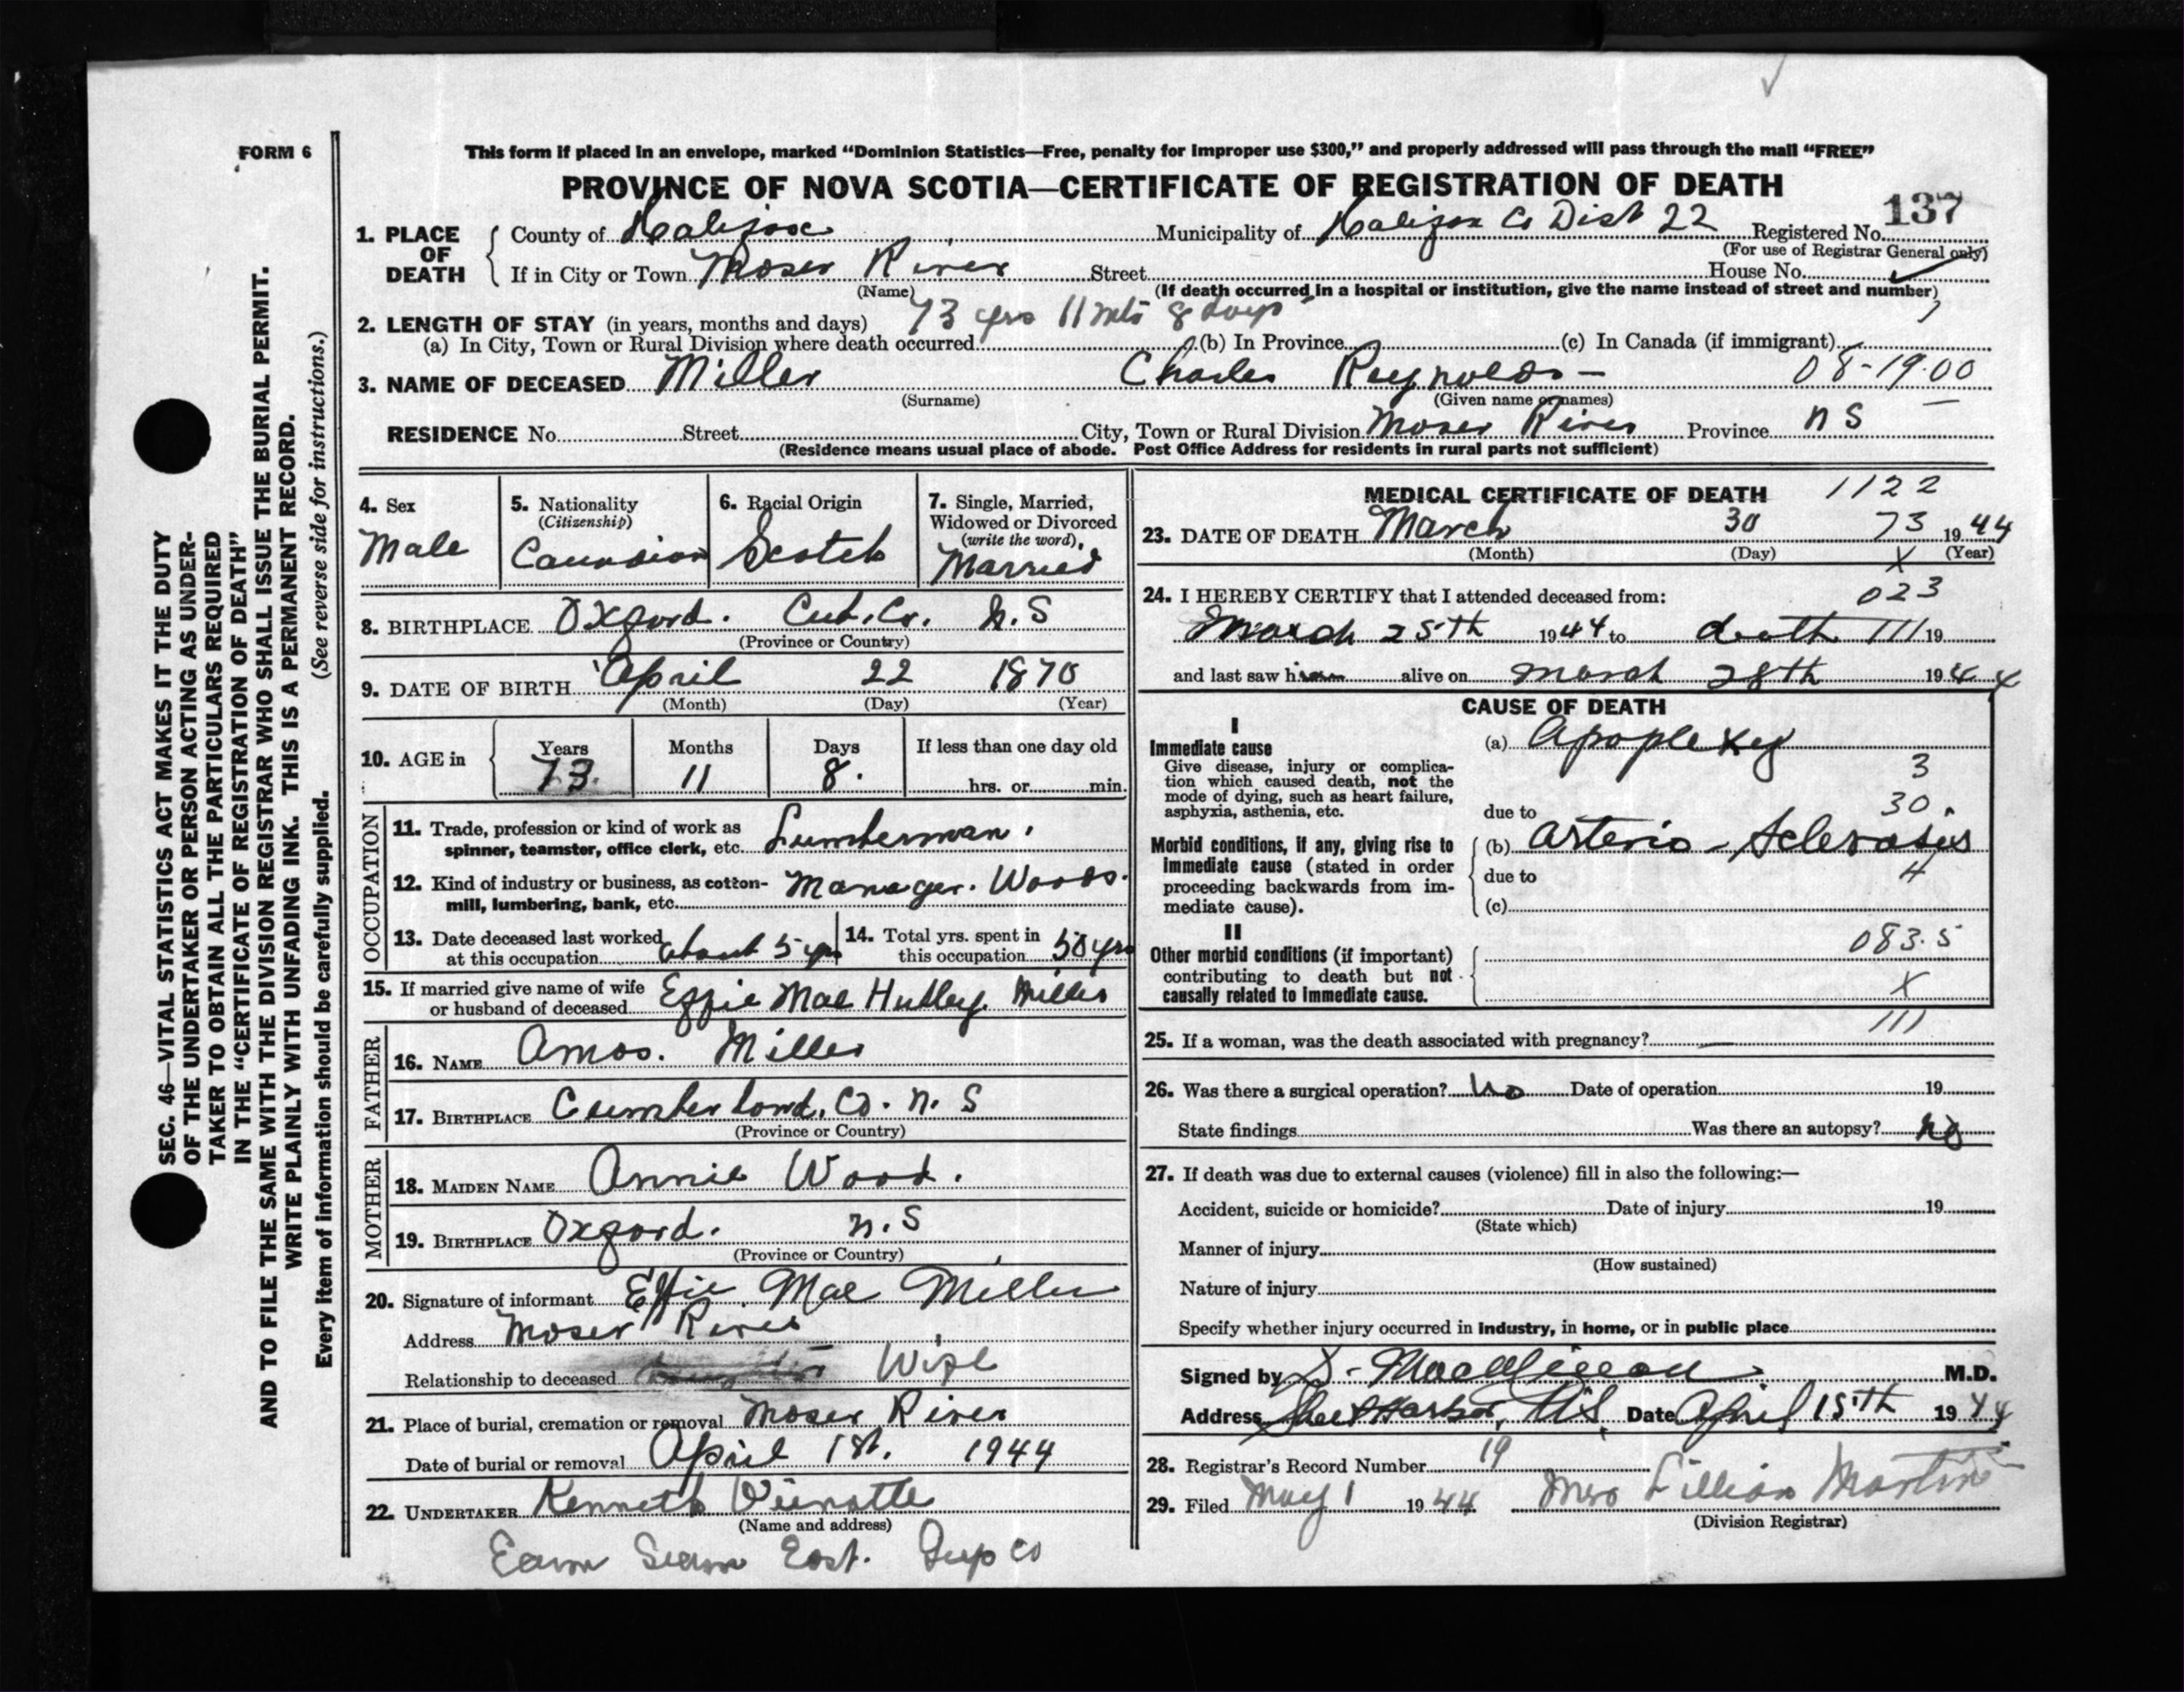 FORM 6
This form if placed in an envelope, marked “Dominion Statistics—Free, penalty for improper use $300,” and properly addressed will pass through the mail “FREE”
PROVINCE OF NOVA SCOTIA—CERTIFICATE OF REGISTRATION OF DEATH
137
1. PLACE OF DEATH County of Halifax Municipality of Halifax Co Dist 22 Registered No.
(For use of Registrar General only)
If in City or Town Moser River Street House No.
(Name) (If death occurred in a hospital or institution, give the name instead of street and number)
2. LENGTH OF STAY (in years, months and days) 73 yrs 11 mts 8 days
(a) In City, Town or Rural Division where death occurred (b) In Province (c) In Canada (if immigrant)
3. NAME OF DECEASED Miller Charles Reynolds - 08-19.00
(Surname) (Given name or names)
RESIDENCE No. Street City, Town or Rural Division Moser River Province N S
(Residence means usual place of abode. Post Office Address for residents in rural parts not sufficient)
4. Sex Male
5. Nationality (Citizenship) Canadian
6. Racial Origin Scotch
7. Single, Married, Widowed or Divorced (write the word) Married
8. BIRTHPLACE Oxford. Cub. Co. N.S
(Province or Country)
9. DATE OF BIRTH April 22 1870
(Month) (Day) (Year)
10. AGE in Years Months Days If less than one day old
73. 11 8. hrs. or min.
OCCUPATION
11. Trade, profession or kind of work as spinner, teamster, office clerk, etc. Lumberman.
12. Kind of industry or business, as cotton-mill, lumbering, bank, etc. Manager. Woods.
13. Date deceased last worked at this occupation about 5 yrs
14. Total yrs. spent in this occupation 50 yrs
15. If married give name of wife or husband of deceased Effie Mae Hutley Miller
FATHER
16. NAME Amos. Miller
17. BIRTHPLACE Cumberland. Co. N. S
(Province or Country)
MOTHER
18. MAIDEN NAME Annie Wood.
19. BIRTHPLACE Oxford. N.S
(Province or Country)
20. Signature of informant Effie Mae Miller
Address Moser River
Relationship to deceased Wife
21. Place of burial, cremation or removal Moser River
Date of burial or removal April 1st. 1944
22. UNDERTAKER Kenneth
(Name and address)
East.
MEDICAL CERTIFICATE OF DEATH 1122
23. DATE OF DEATH March 30 73 1944
(Month) (Day) X (Year)
24. I HEREBY CERTIFY that I attended deceased from: 023
March 25th 1944 to death 111 19
and last saw him alive on March 28th 1944
CAUSE OF DEATH
I
Immediate cause
Give disease, injury or complication which caused death, not the mode of dying, such as heart failure, asphyxia, asthenia, etc.
(a) Apoplexy
3
30.
due to
Morbid conditions, if any, giving rise to immediate cause (stated in order proceeding backwards from immediate cause).
(b) Arterio-Sclerosis
due to 4
(c)
II
Other morbid conditions (if important) contributing to death but not causally related to immediate cause.
083.5
X
111
25. If a woman, was the death associated with pregnancy? —
26. Was there a surgical operation? No Date of operation 19
State findings Was there an autopsy? No
27. If death was due to external causes (violence) fill in also the following:—
Accident, suicide or homicide? Date of injury 19
(State which)
Manner of injury
(How sustained)
Nature of injury
Specify whether injury occurred in industry, in home, or in public place
Signed by M.D.
Address Sheet Harbor, N.S. Date April 15th 1944
28. Registrar's Record Number 19
29. Filed May 1 1944 Mrs Lillian Martin
(Division Registrar)
SEC. 46—VITAL STATISTICS ACT MAKES IT THE DUTY
OF THE UNDERTAKER OR PERSON ACTING AS UNDER-
TAKER TO OBTAIN ALL THE PARTICULARS REQUIRED
IN THE “CERTIFICATE OF REGISTRATION OF DEATH”
AND TO FILE THE SAME WITH THE DIVISION REGISTRAR WHO SHALL ISSUE THE BURIAL PERMIT.
WRITE PLAINLY WITH UNFADING INK. THIS IS A PERMANENT RECORD.
Every item of information should be carefully supplied. (See reverse side for instructions.)